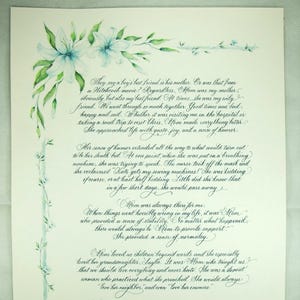 They say a boy's best friend is his mother. Or was that from
a Hitchcock movie? Regardless, Mom was my mother,
obviously, but also my best friend. At times, she was my only
friend. We went through so much together. Good times and bad,
happy and sad. Whether it was visiting me in the hospital or
taking a road trip to visit Chris, Mom made everything better.
She approached life with pure joy and a sense of humor.
Her sense of humor extended all the way to what would turn out
to be her death bed. At one point, when she was put on a breathing
machine, she was trying to speak. The nurse took off the mask and
she exclaimed
in a few short days, she would pass away.
Mom was always there for me.
When things went horribly wrong in my life, it was Mom
who provided a sense of stability. No matter what happened,
there would always be Mom to provide support.
She provided a sense of normalcy.
Mom loved us children beyond words and she especially
loved her granddaughter,
that we should love everything and never hate. She was a devout
woman who practiced what she preached. She would always
love her neighbor, and even love her enemies.